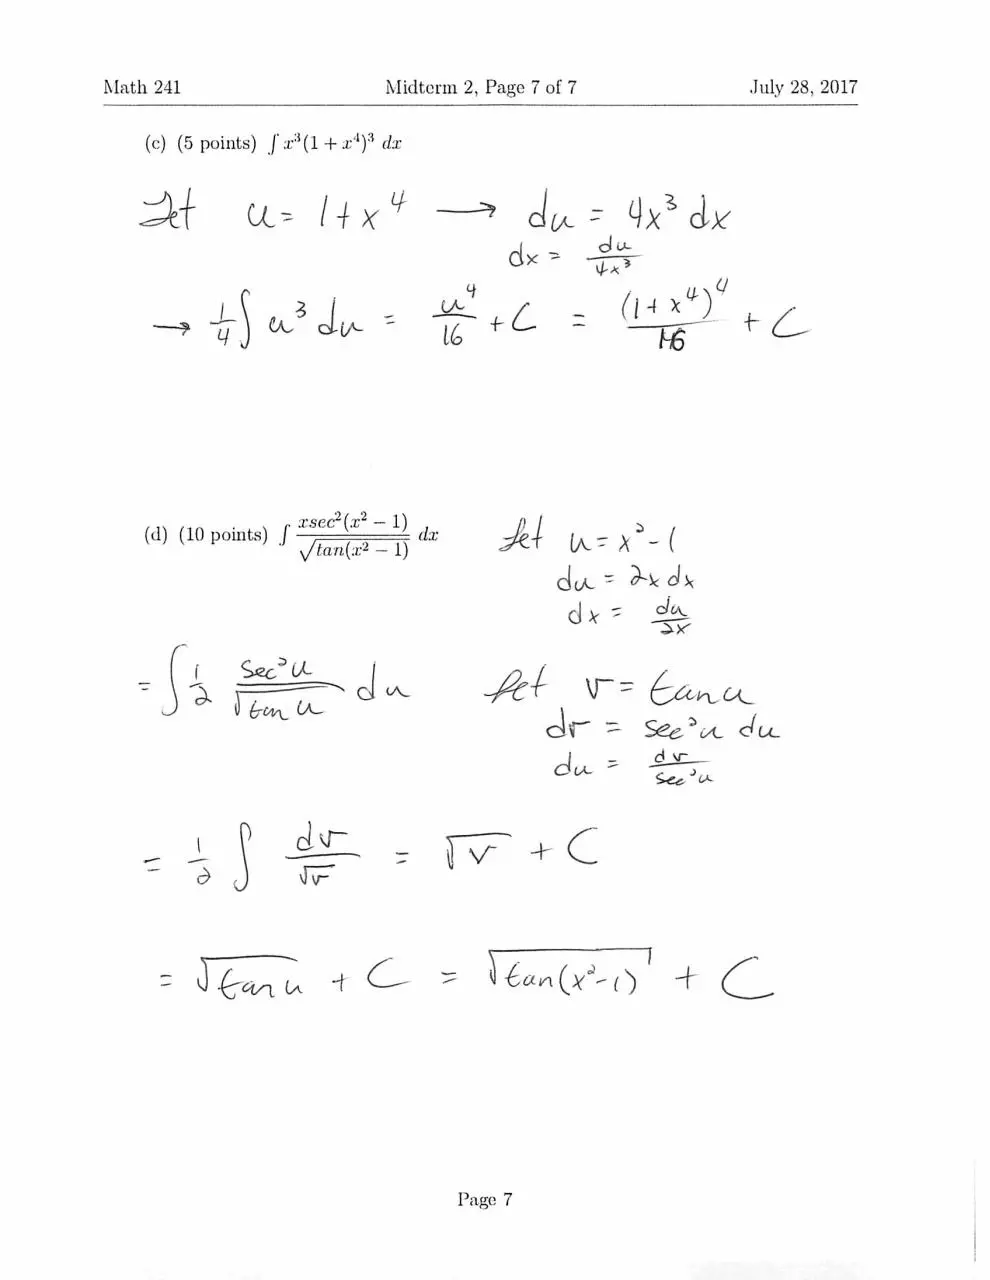 Math 241 Midterm 2, Page 7 of 7 July 28, 2017
(c) (5 points) ∫ x³(1 + x⁴)³ dx
Let u = 1 + x⁴ → du = 4x³ dx
dx = du/4x³
→ 1/4 ∫ u³ du = u⁴/16 + C = (1 + x⁴)⁴/16 + C
(d) (10 points) ∫ xsec²(x² − 1)/√tan(x² − 1) dx Let u = x² − 1
du = 2x dx
dx = du/2x
= ∫ 1/2 sec²u/√tan u du Let v = tan u
dv = sec²u du
du = dv/sec²u
= 1/2 ∫ dv/√v = √v + C
= √tan u + C = √tan(x²−1) + C
Page 7